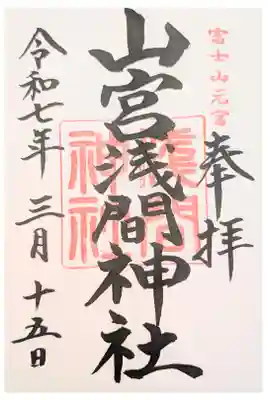 富士山元宮
奉拝
山宮浅間神社
浅間
神社
令和七年 三月 十五日